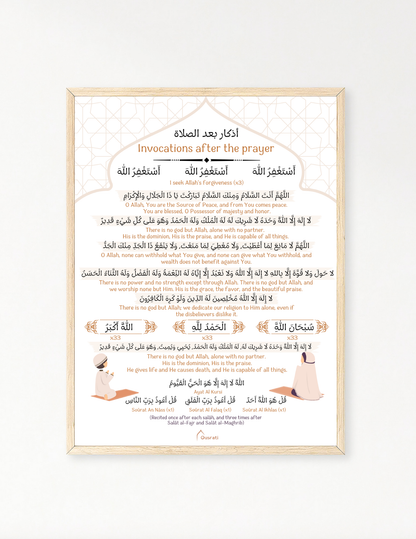 أذكار بعد الصلاة
Invocations after the prayer
أَسْتَغْفِرُ اللَّهَ أَسْتَغْفِرُ اللَّهَ أَسْتَغْفِرُ اللَّهَ
I seek Allah's Forgiveness (x3)
اللَّهُمَّ أَنْتَ السَّلَامُ وَمِنْكَ السَّلَامُ تَبَارَكْتَ يَا ذَا الْجَلَالِ وَالْإِكْرَامِ
O Allah, You are the Source of Peace, and from You comes peace.
You are blessed, O Possessor of majesty and honor.
لَا إِلَهَ إِلَّا اللَّهُ وَحْدَهُ لَا شَرِيكَ لَهُ، لَهُ الْمُلْكُ وَلَهُ الْحَمْدُ، وَهُوَ عَلَى كُلِّ شَيْءٍ قَدِيرٌ
There is no god but Allah, alone with no partner.
His is the dominion, His is the praise, and He is capable of all things.
اللَّهُمَّ لَا مَانِعَ لِمَا أَعْطَيْتَ، وَلَا مُعْطِيَ لِمَا مَنَعْتَ، وَلَا يَنْفَعُ ذَا الْجَدِّ مِنْكَ الْجَدُّ
O Allah, none can withhold what You give, and none can give what You withhold, and
wealth does not benefit against You.
لَا حَوْلَ وَلَا قُوَّةَ إِلَّا بِاللهِ لَا إِلَهَ إِلَّا اللَّهُ وَلَا نَعْبُدُ إِلَّا إِيَّاهُ لَهُ النِّعْمَةُ وَلَهُ الْفَضْلُ وَلَهُ الثَّنَاءُ الْحَسَنُ
There is no power and no strength except through Allah. There is no god but Allah, and
we worship none but Him. His is the grace, the favor, and the beautiful praise.
لَا إِلَهَ إِلَّا اللَّهُ مُخْلِصِينَ لَهُ الدِّينَ وَلَوْ كَرِهَ الْكَافِرُونَ
There is no god but Allah; we dedicate our religion to Him alone, even if
the disbelievers dislike it.
سُبْحَانَ اللَّهِ الْحَمْدُ لِلَّهِ اللَّهُ أَكْبَرُ
x33 x33 x33
لَا إِلَهَ إِلَّا اللَّهُ وَحْدَهُ لَا شَرِيكَ لَهُ، لَهُ الْمُلْكُ وَلَهُ الْحَمْدُ، يُحْيِي وَيُمِيتُ، وَهُوَ عَلَى كُلِّ شَيْءٍ قَدِيرٌ
There is no god but Allah, alone with no partner.
His is the dominion, His is the praise.
He gives life and He causes death, and He is capable of all things.
اللَّهُ لَا إِلَهَ إِلَّا هُوَ الْحَيُّ الْقَيُّومُ
Ayat Al Kursi
قُلْ هُوَ اللَّهُ أَحَدٌ قُلْ أَعُوذُ بِرَبِّ الْفَلَقِ قُلْ أَعُوذُ بِرَبِّ النَّاسِ
Suórat An-Náas (x1) Suórat Al Falaq (x1) Suórat Al Ikhlas (x1)
(Recited once after each salát, and three times after
Salát al-Fajr and Salát al-Maghrib)